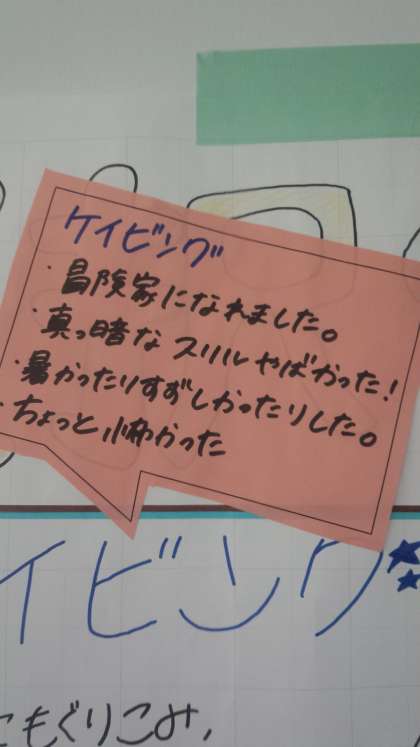 ケイビング
・冒険家になれました。
・真っ暗な スリルやばかった!
・暑かったりすずしかったりした。
・ちょっと怖かった
イビング
こもぐりこみ,